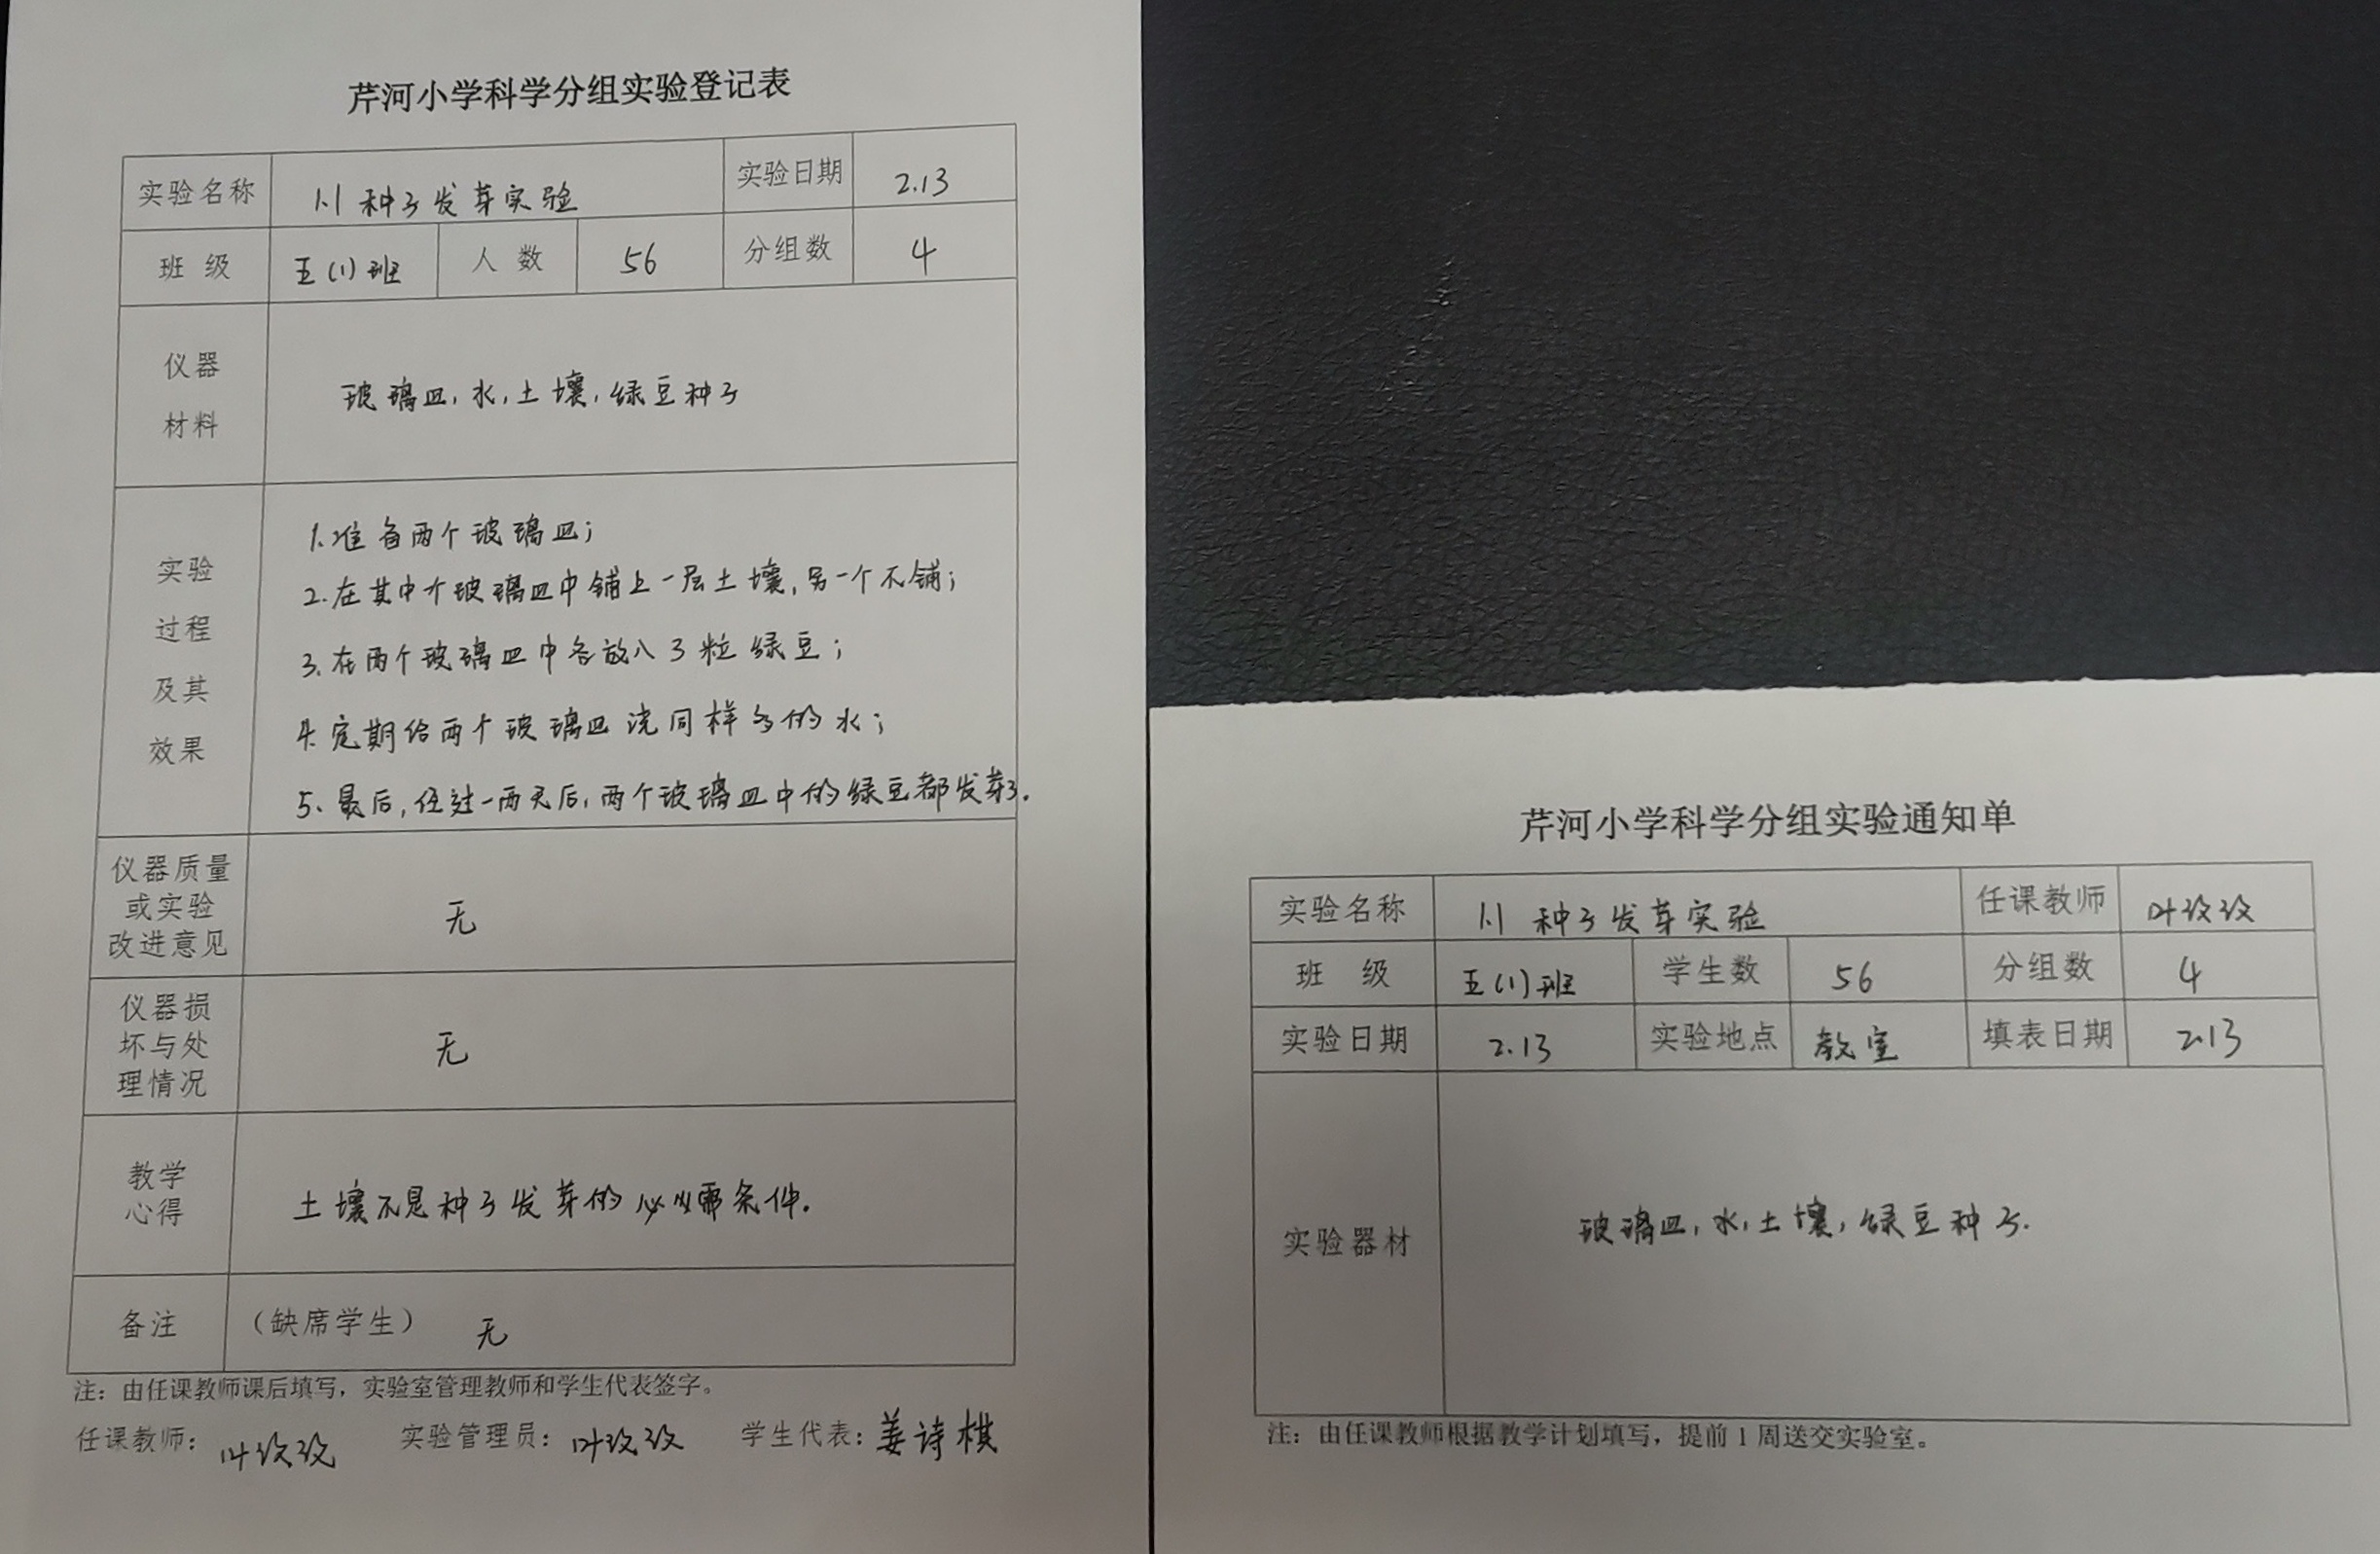 芹河小学科学分组实验登记表
实验名称 1.1 种子发芽实验 实验日期 2.13
班 级 五(1)班 人 数 56 分组数 4
仪器
材料
玻璃皿,水,土壤,绿豆种子
实验
过程
及其
效果
1.准备两个玻璃皿;
2.在其中个玻璃皿中铺上一层土壤,另一个不铺;
3.在两个玻璃皿中各放入3粒绿豆;
4.定期给两个玻璃皿浇同样多的水;
5、最后,经过一两天后,两个玻璃皿中的绿豆都发芽了.
仪器质量
或实验
改进意见
无
仪器损
坏与处
理情况
无
教学
心得
土壤不是种子发芽的必需条件.
备注 (缺席学生) 无
注:由任课教师课后填写,实验室管理教师和学生代表签字。
任课教师: 叶玟玟 实验管理员: 叶玟玟 学生代表: 姜诗棋
芹河小学科学分组实验通知单
实验名称 1.1 种子发芽实验 任课教师 叶玟玟
班 级 五(1)班 学生数 56 分组数 4
实验日期 2.13 实验地点 教室 填表日期 2.13
实验器材 玻璃皿,水,土壤,绿豆种子.
注:由任课教师根据教学计划填写,提前1周送交实验室。